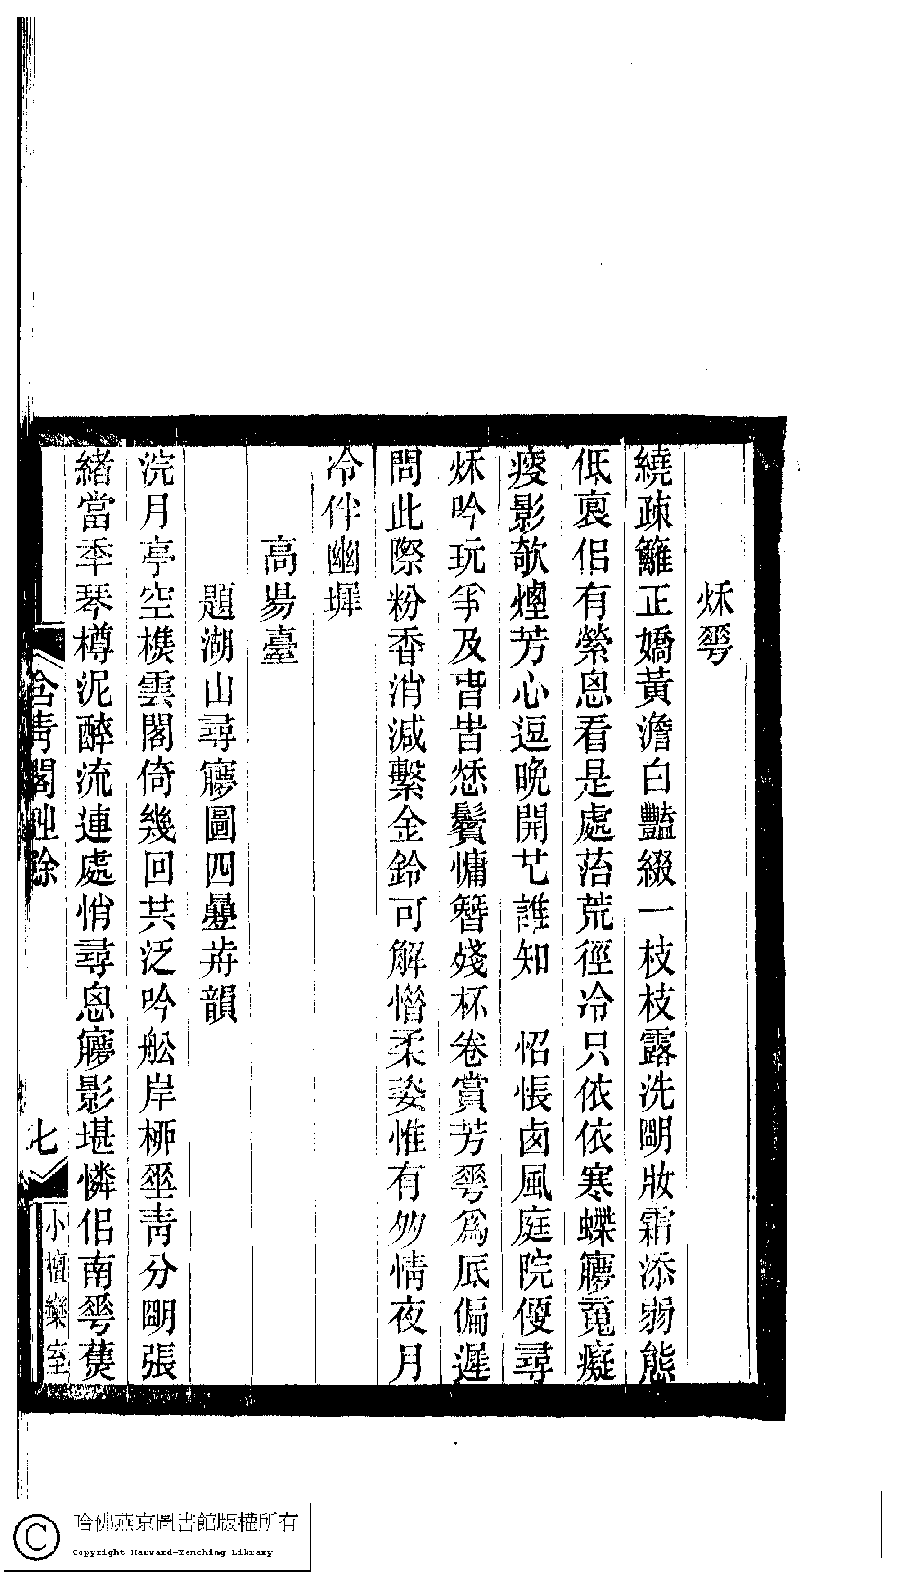 秌䔢
繞疎籬正嬌黃澹白豔綴一枝枝露洗朙妝霜添弱態
低裊侶有縈恖看是處菭荒徑冷只依依寒蝶㝱䰟癡
瘦影欹煙芳心逗晚開也誰知　怊悵鹵風庭院便尋
秌吟玩爭及昔時愁鬢慵簪殘杯卷賞芳䔢爲底偏遲
問此際粉香消減繫金鈴可解惜柔姿惟有多情夜月
冷伴幽墀
高昜臺
題湖山尋㝱圖四疊歬韻
浣月亭空樵雲閣倚幾回共泛吟舩岸桺垂靑分朙張
緒當秊琴樽泥醉流連處悄尋恖㝱影堪憐侶南䔢蕉
含靑閣詩餘
七
小檀欒室
哈佛燕京圖書館版權所有
Copyright Harvard-Yenching Library